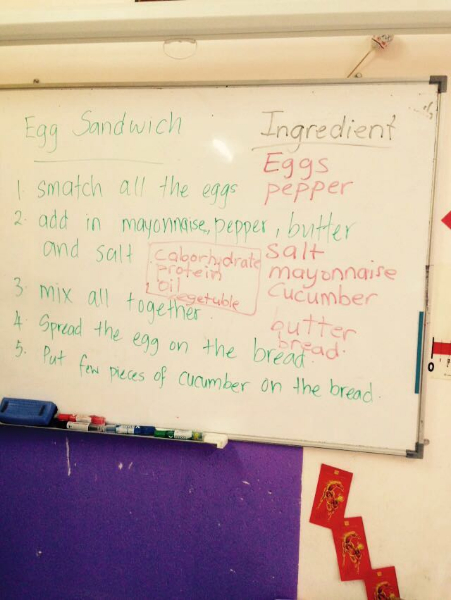 Egg Sandwich
1. smatch all the eggs
2. add in mayonnaise, pepper, butter
and salt
3. mix all together.
4. Spread the egg on the bread.
5. Put few pieces of cucumber on the bread.
caborhydrate
protein
oil
vegetable
Ingredient
Eggs
pepper
salt
mayonnaise
cucumber
butter
bread.
0